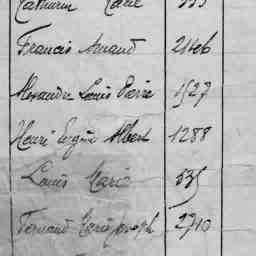 Catharin Marie 555
Francis Arnaud 2406
Alexandre Louis Pierre 1527
Henri Eugène Albert 1288
Louis Marie 535
Fernand Marie Joseph 2710